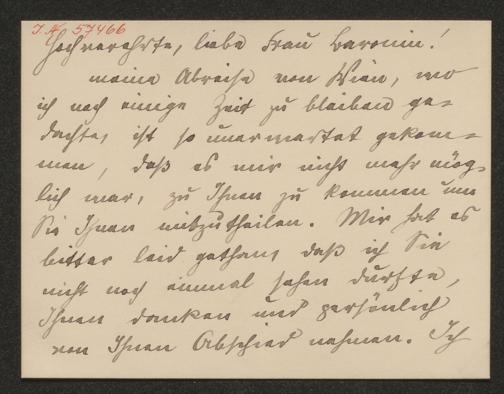 I.N. 57466
Hochverehrte, liebe Frau Baronin!
meine Abreise von Wien, wo
ich noch einige Zeit zu bleiben ge-
dachte, ist so unerwartet gekom-
men, daß es mir nicht mehr mög-
lich war, zu Ihnen zu kommen um
Sie Ihnen mitzutheilen. Mir hat es
bitter leid gethan, daß ich Sie
nicht noch einmal sehen durfte,
Ihnen danken und persönlich
von Ihnen Abschied nehmen. Ich